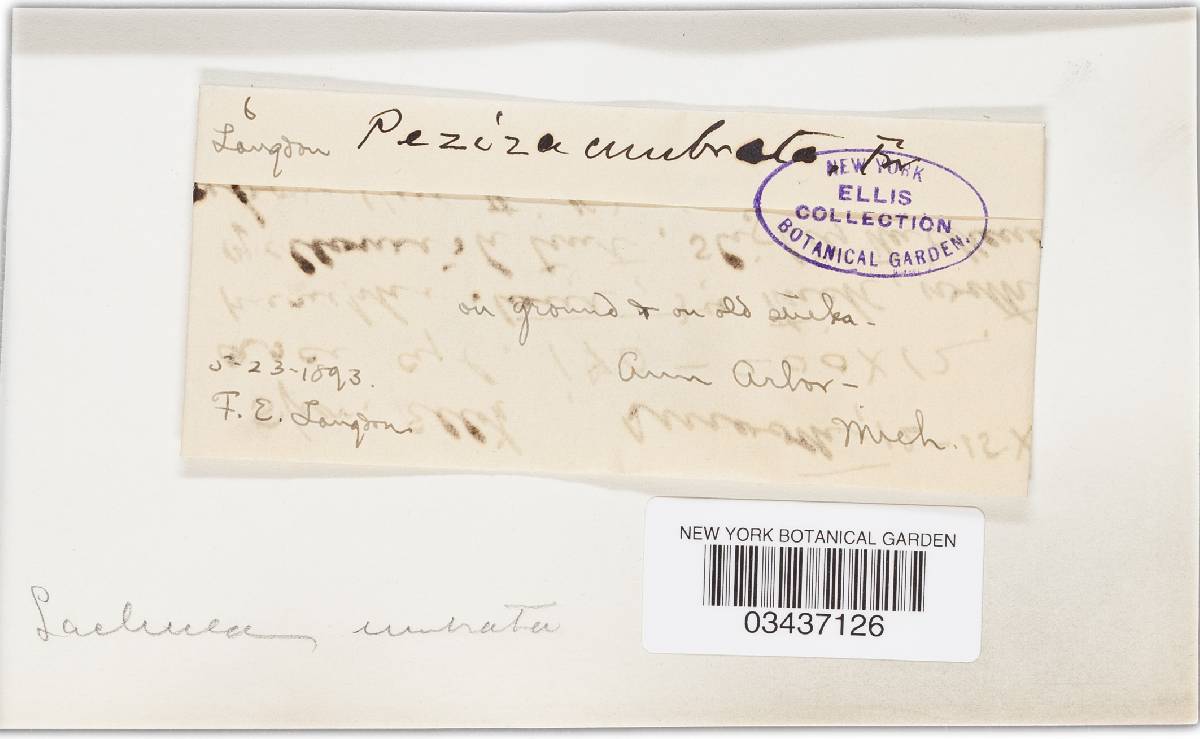 6
Langdon Peziza umbrata, Fr
NEW YORK
ELLIS
COLLECTION
BOTANICAL GARDEN.
on ground & on old sticks-
5-23-1893.
Ann Arbor-
F. E. Langdon.
Mich.
NEW YORK BOTANICAL GARDEN
03437126
Lachnea umbrata